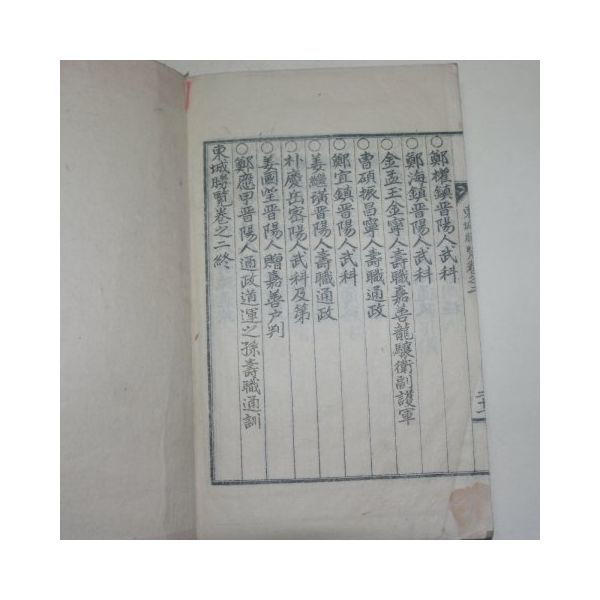 東城勝覽卷之二
二十一
○鄭權鎮晋陽人武科
○鄭海鎮晋陽人武科
○金孟玉金寧人壽職嘉善龍驤衛副護軍
○曹碩振昌寧人壽職通政
○鄭宜鎮晋陽人武科
○姜繼璜晋陽人壽職通政
○朴慶岳密陽人武科及第
○姜圖巠晋陽人贈嘉善户判
○鄭應甲晋陽人通政道運之孫壽職通訓
東城勝覽卷之二終